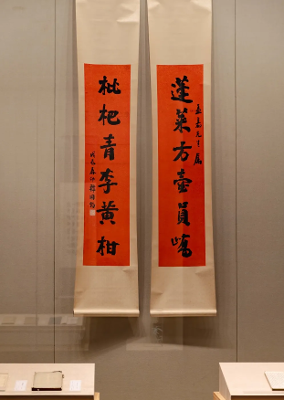 蓬萊方壺員嶠
枇杷青李黃柑